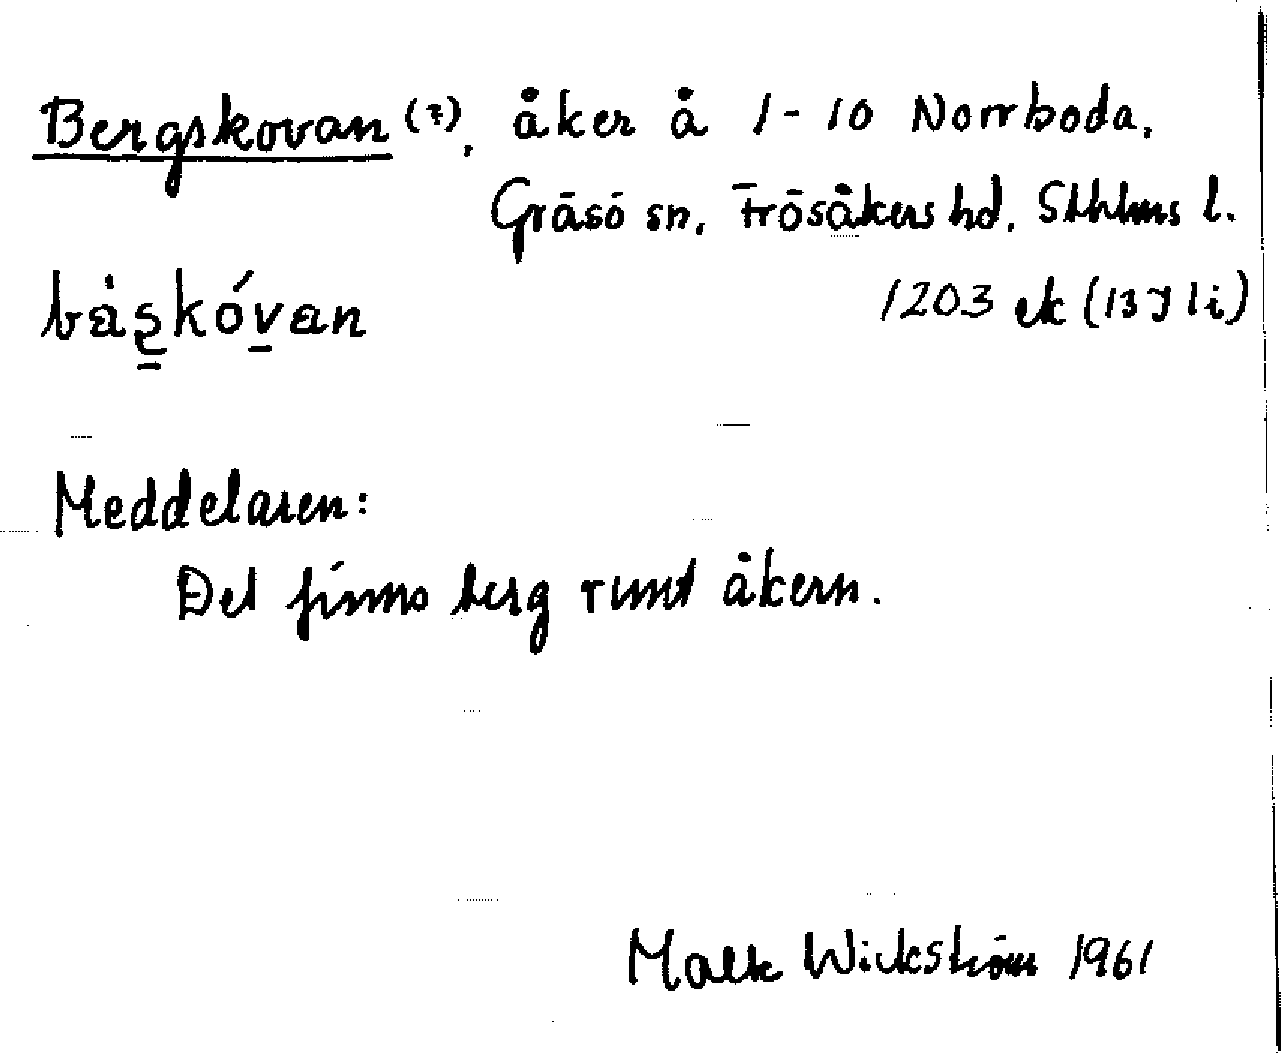 Bergskovan (7), åker å 1-10 Norrboda,
Gräsö sn, Frösåkers hd, Sthlms l.
båskóvan
1203 ek (13 J li)
Meddelaren:
Det finns berg runt åkern.
Wickström 1961